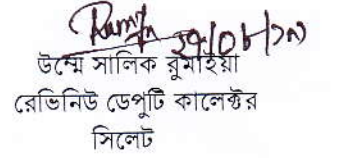 উম্মে সালিক রুমাইয়া
রেভিনিউ ডেপুটি কালেক্টর
সিলেট